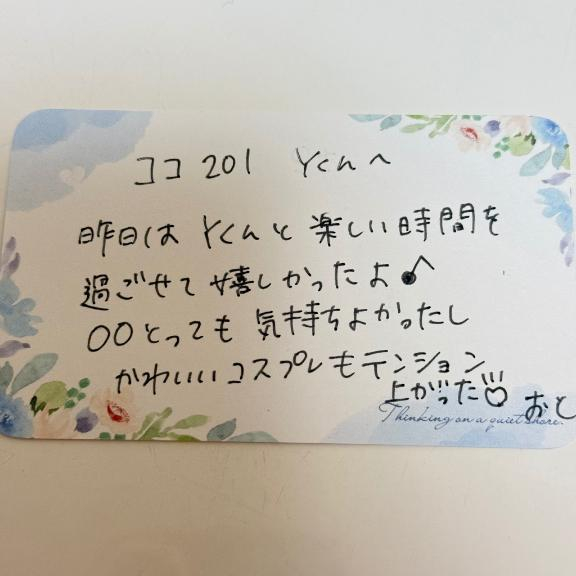 ココ 201 Yくんへ
昨日は Yくんと 楽しい時間を
過ごせて 嬉しかったよ♪
〇〇とっても 気持ちよかったし
かわいいコスプレもテンション
上がった♡
おと
Thinking on a quiet shore.